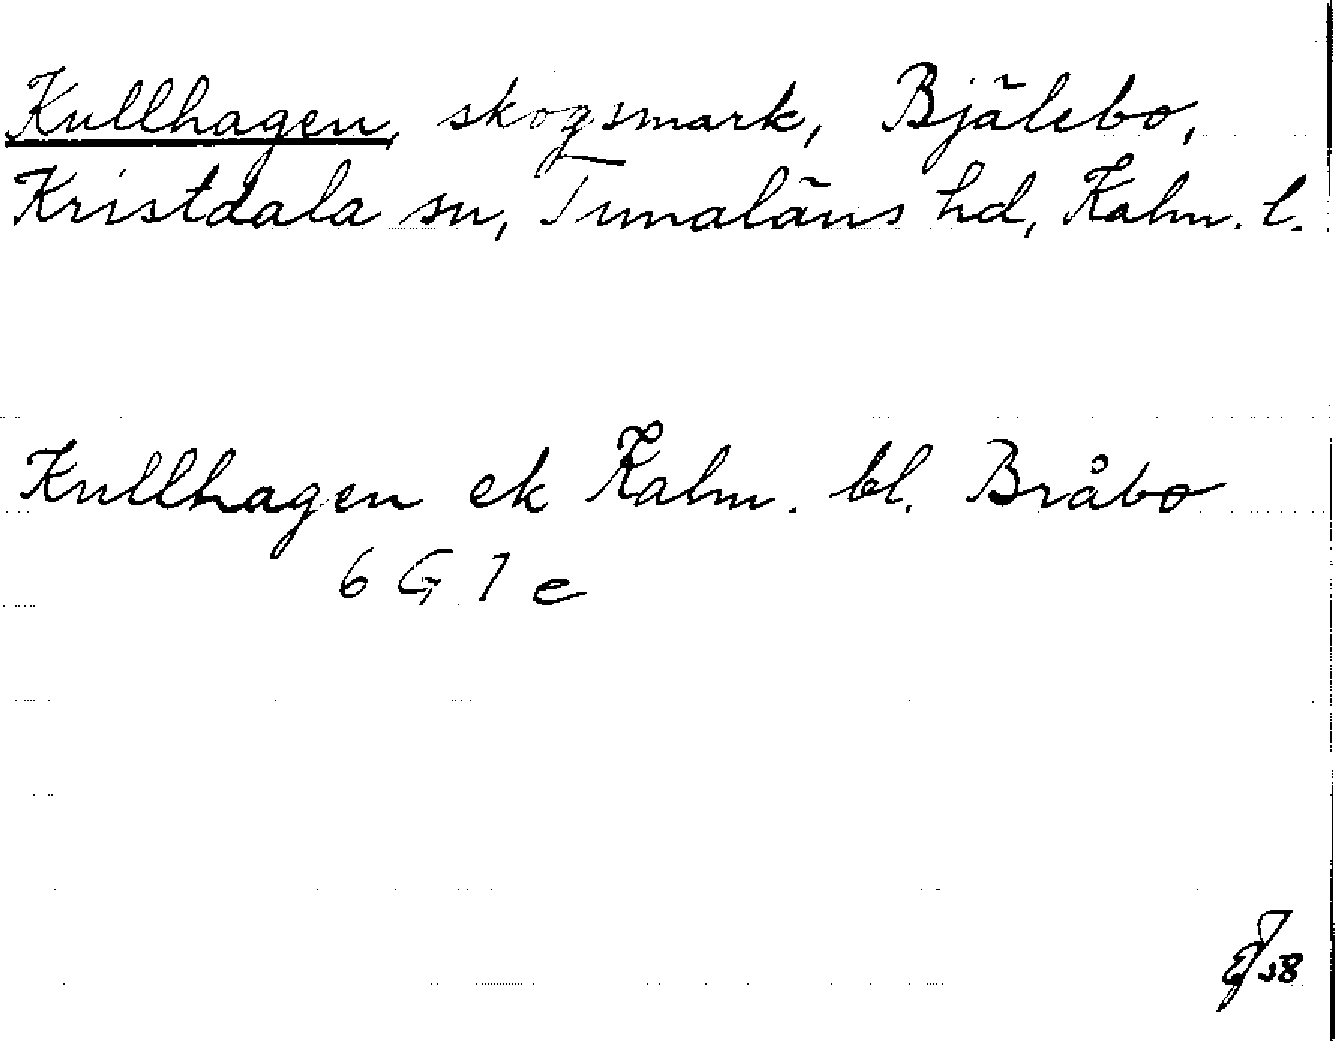 Kullhagen, skogsmark, Bjälebo,
Kristdala sn, Tunaläns hd, Kalm. l.
Kullhagen ek Kalm. bl. Bråbo
6 G 1 e